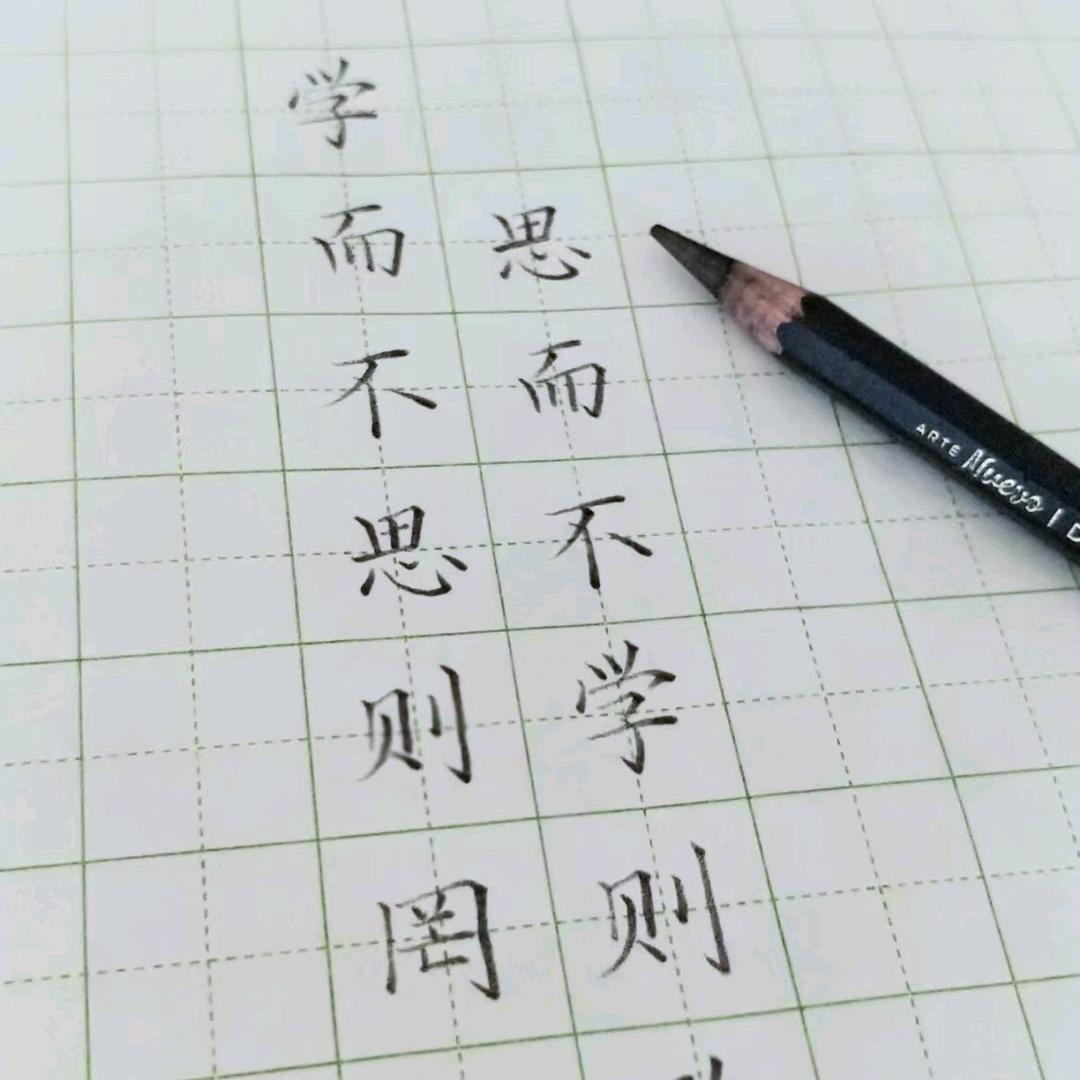 学而不思则罔
思而不学则
ARTE Nuevo